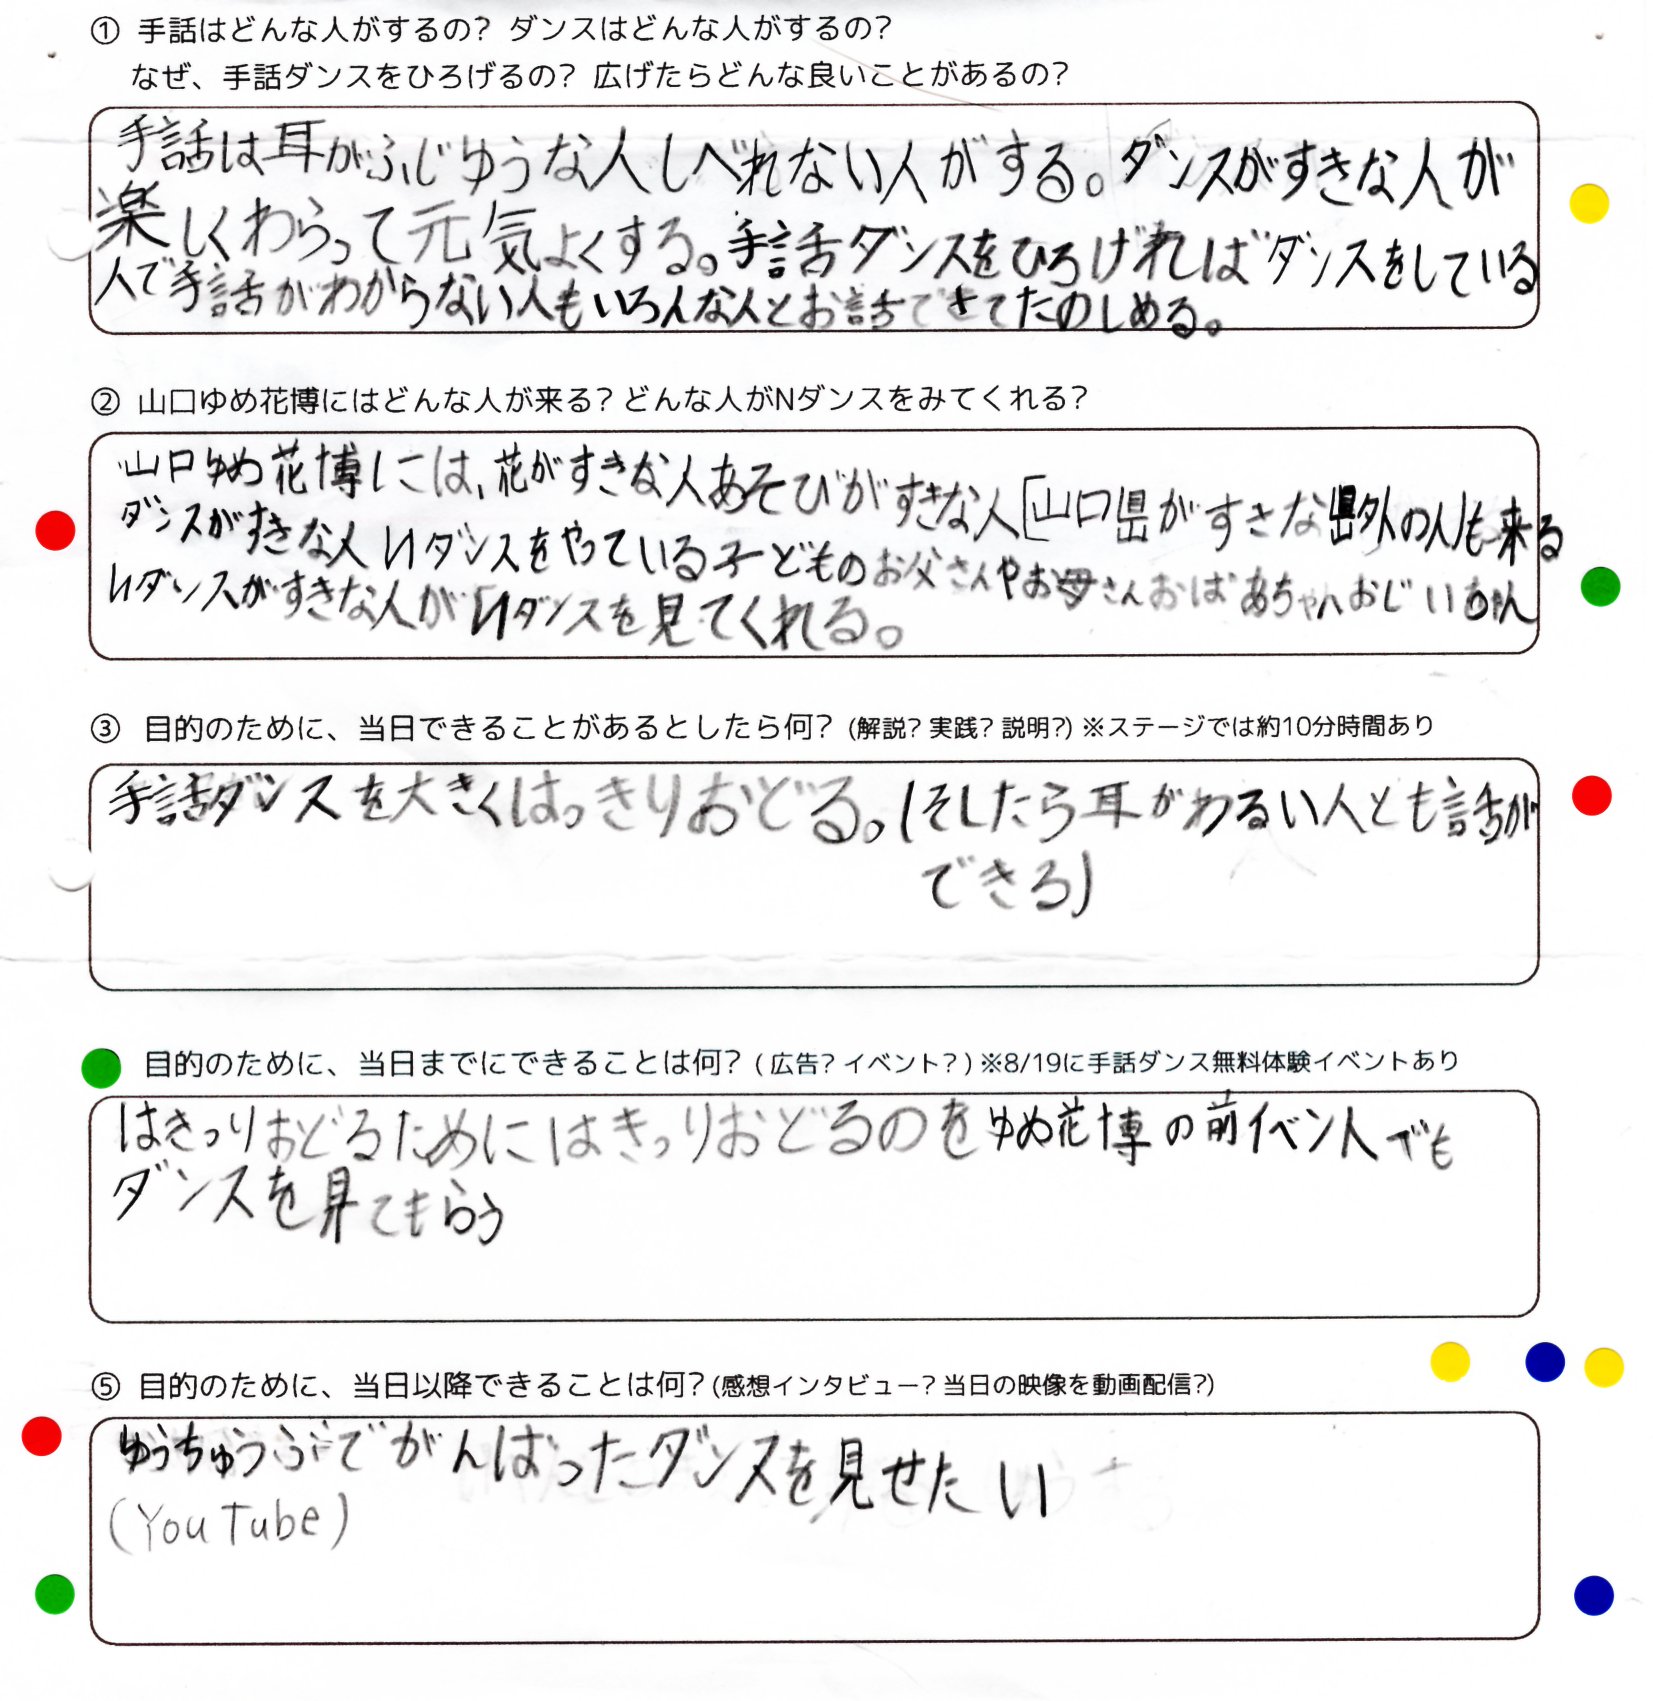 ① 手話はどんな人がするの? ダンスはどんな人がするの?
なぜ、手話ダンスをひろげるの? 広げたらどんな良いことがあるの?
手話は耳がふじゆうな人しべれない人がする。ダンスがすきな人が
楽しくわらって元気よくする。手話ダンスをひろげればダンスをしている
人で手話がわからない人もいろんな人とお話できてたのしめる。
② 山口ゆめ花博にはどんな人が来る? どんな人がNダンスをみてくれる?
山口ゆめ花博には、花がすきな人あそびがすきな人「山口県がすきな県外の人」も来る
ダンスがすきな人Nダンスをやっている子どものお父さんやお母さんおばあちゃんおじいちゃん
Nダンスがすきな人が「Nダンスを見てくれる。
③ 目的のために、当日できることがあるとしたら何? (解説? 実践? 説明?) ※ステージでは約10分時間あり
手話ダンスを大きくはっきりおどる。(そしたら耳がわるい人とも話が
できる)
目的のために、当日までにできることは何? ( 広告? イベント? ) ※8/19に手話ダンス無料体験イベントあり
はきっりおどるためにはきっりおどるのをゆめ花博の前イベントでも
ダンスを見てもらう
⑤ 目的のために、当日以降できることは何? (感想インタビュー? 当日の映像を動画配信?)
ゆうちゅうぶでがんばったダンスを見せたい
(YouTube)